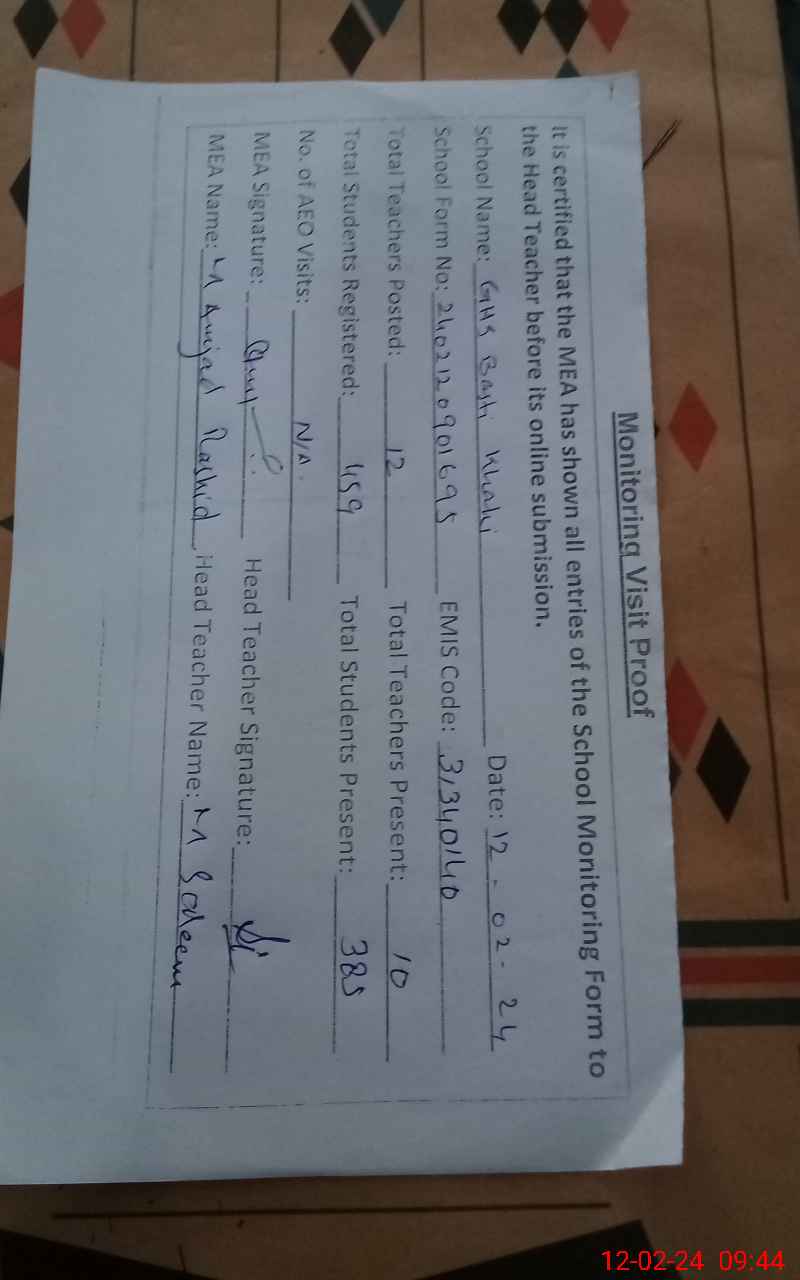 Monitoring Visit Proof
It is certified that the MEA has shown all entries of the School Monitoring Form to
the Head Teacher before its online submission.
School Name: GHS Basti Khahi Date: 12-02-24
School Form No: 2402120901695 EMIS Code: 31340140
Total Teachers Posted: 12 Total Teachers Present: 10
Total Students Registered: 459 Total Students Present: 385
No. of AEO Visits: N/A.
MEA Signature: Head Teacher Signature:
MEA Name: M Amjad Rashid Head Teacher Name: M Saleem
12-02-24 09:44